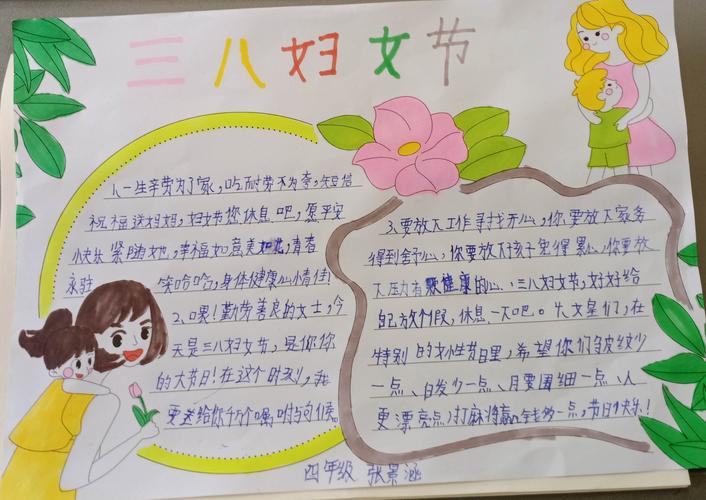 三八妇女节
1.一生辛劳为了家,吃耐劳不为夸,短信
祝福送妈妈,妇女节您休息吧,愿平安
小快乐紧随她,幸福如意美如花,青春
永驻 笑哈哈,身体健康心情佳!
2、嘿!勤劳善良的女士,今
天是三八妇女节,是你你
的大节日!在这个时刻,我
更送给你千万个嘱咐与问候。
3.要放下工作寻找开心,你要放下家务
得到舒心,你要放下孩子免得累心,你要放
下压力有颗健康的心,三八妇女节,好好给
自己放个假,休息一下吧。4.女星们,在
特别的女性节日里,希望你们皱纹少
一点、白发少一点、月要围细一点、人
更漂亮点,打麻将赢金钱多一点,节日快乐!
四年级 张景涵